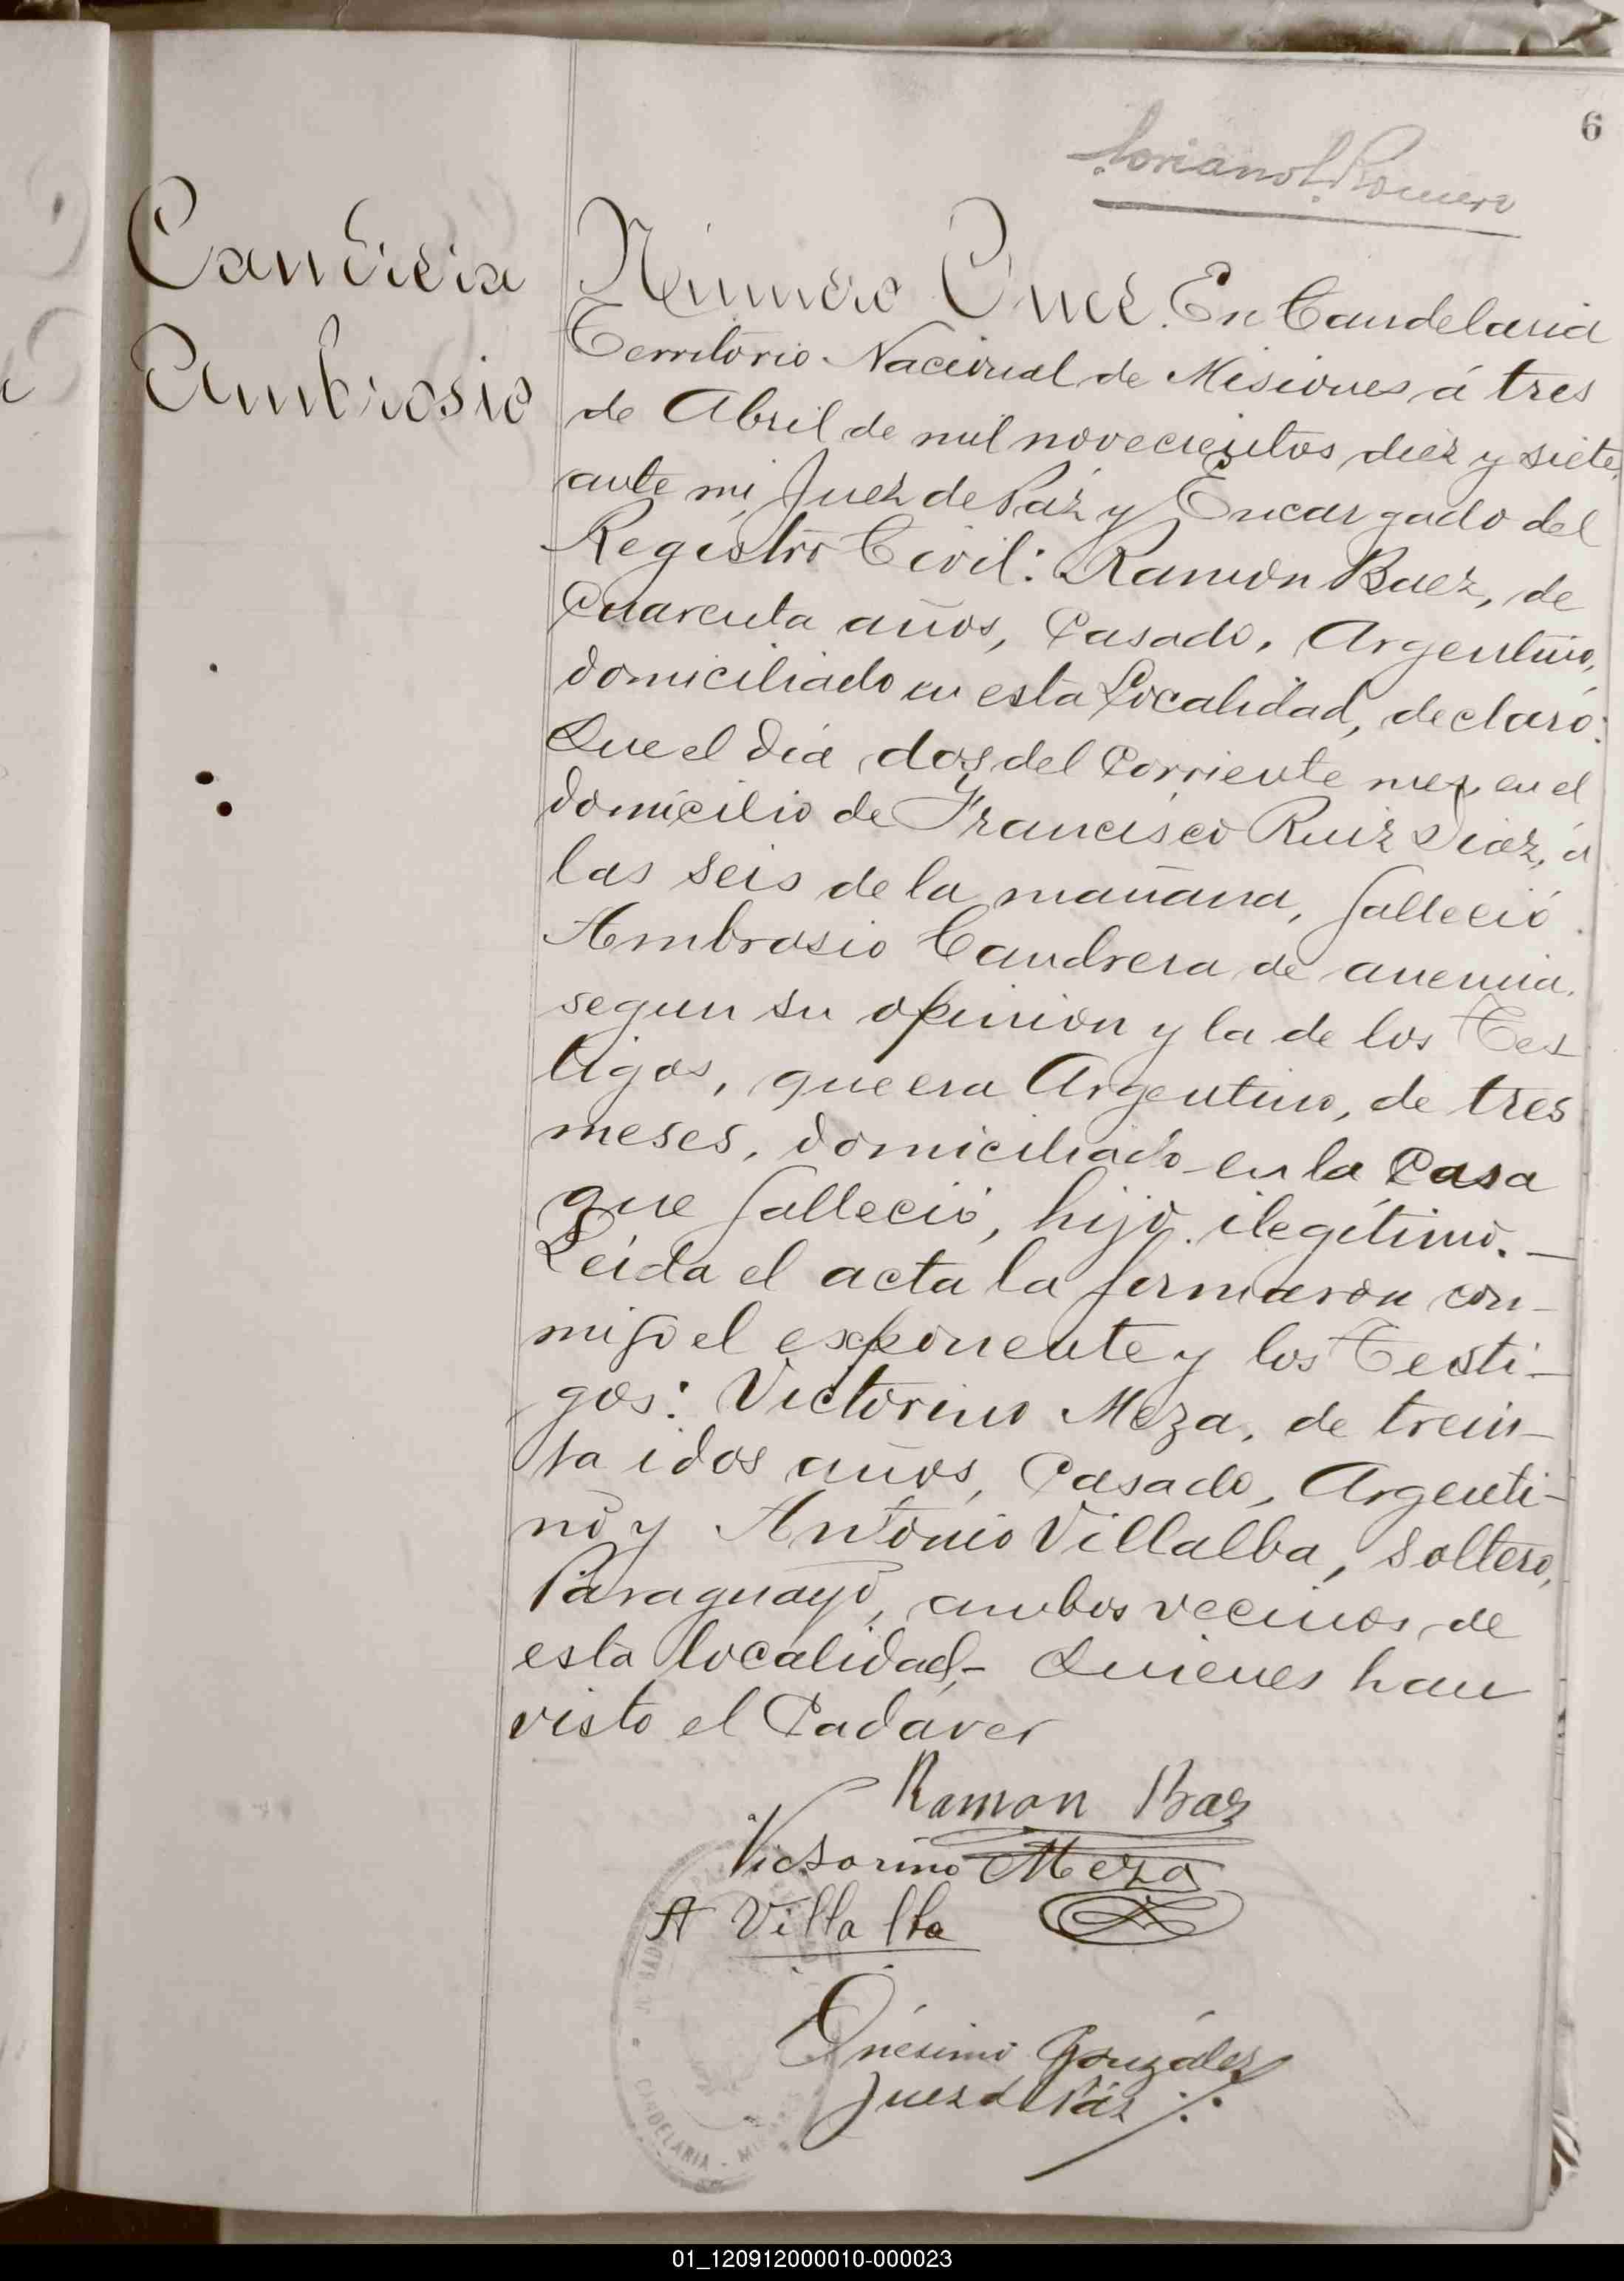 6
Soriano L. Romero
Ambrosio
Número Once. En Candelaria
Territorio Nacional de Misiones á tres
de Abril de mil novecientos diez y siete,
ante mi, Juez de Paz y Encargado del
Registro Civil: Ramón Baez, de
cuarenta años, Casado, Argentino,
domiciliado en esta Localidad, declaró:
Que el día dos del corriente mes, en el
domicilio de Francisco Ruiz Diaz, á
las seis de la mañana, falleció
Ambrosio Candrera de anemia.
segun su opinión y la de los Tes
tigos, que era Argentino, de tres
meses, domiciliado en la Casa
que falleció, hijo ilegítimo. —
Leida el acta la firmaron con-
migo el exponente y los Testi-
gos: Victorino Meza, de trein-
ta i dos años, Casado, Argenti-
no y Antonio Villalba, Soltero,
Paraguayo, ambos vecinos de
esta localidad,- Quienes han
visto el Cadáver
Ramon Baz
Victorino Meza
A Villalba
Onésimo González
Juez de Páz
CANDELARIA - MISIONES
01_120912000010-000023